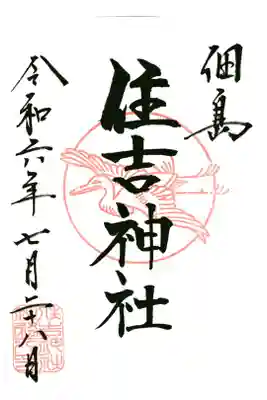 佃島
住吉神社
令和六年七月二十八日